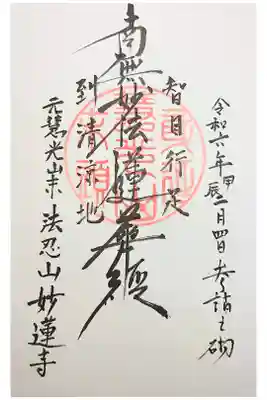 令和六年甲辰二月四日参詣之砌
智目行足
南無妙法蓮華經
到清涼地
法忍山妙蓮寺